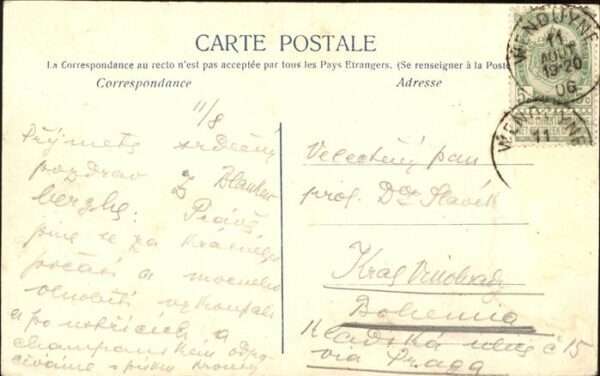 CARTE POSTALE
La Correspondance au recto n'est pas acceptée par tous les Pays Etrangers. (Se renseigner à la Poste)
Correspondance
Adresse
WENDUYNE
11
AOUT
19-20
06
WENDUYNE
11
11/8
Přijměte srdečný
pozdrav z Blanken
berghe. Právě
jsme se za krásného
počasí a mocného
vykoupali
a po ústřicích a
champaňském odpo
číváme
Velectěný pan
prof. Dr Slavík
Král Vinohrady
Bohemia
Kladská ulice č 15
via Prag